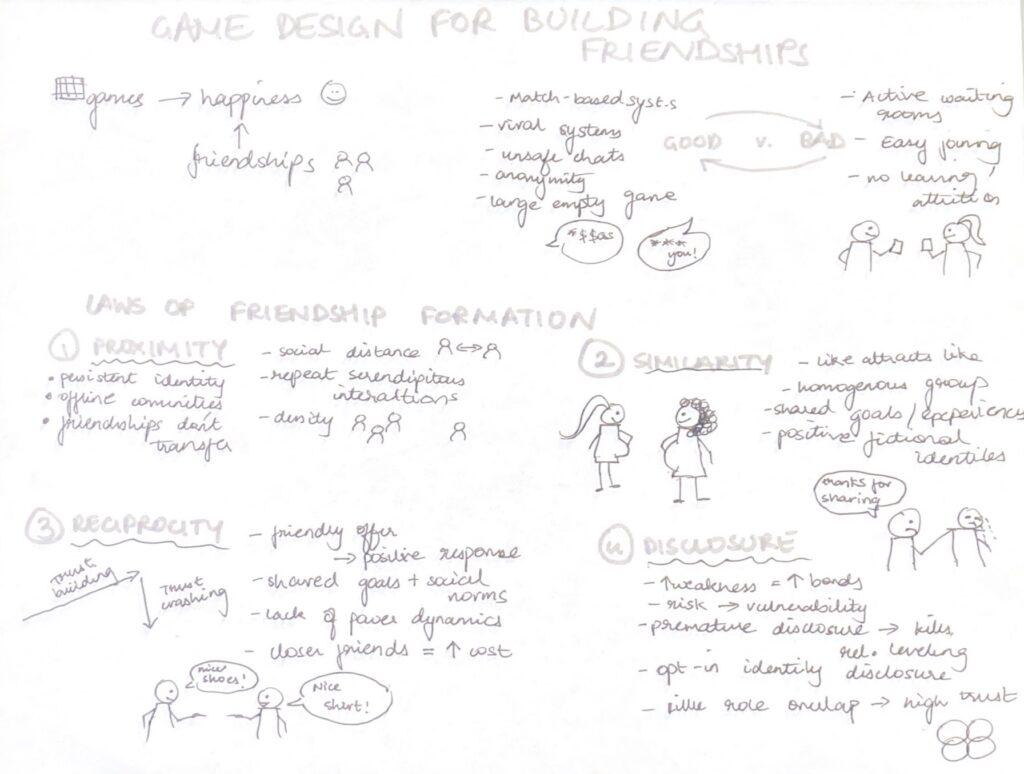 GAME DESIGN FOR BUILDING
FRIENDSHIPS
games → happiness
↑
friendships
- Match-based syst.s
- viral systems
- unsafe chats
- anonymity
- large empty game
*$$as
***
you!
GOOD v. BAD
- Active waiting
rooms
- Easy joining
- no leaving /
attrition
LAWS OF FRIENDSHIP FORMATION
1 PROXIMITY
• persistent identity
• offline comunities
• friendships don't
transfer
- social distance ↔
- repeat serendipitous
interactions
- density
2 SIMILARITY
- like attracts like
- homogenous group
- shared goals/experiences
- positive fictional
identities
3 RECIPROCITY
Trust
building
Trust
crashing
- friendly offer
→ positive response
- shared goals + social
norms
- lack of power dynamics
- closer friends = ↑ cost
nice
shoes!
Nice
shirt!
thanks for
sharing
4 DISCLOSURE
- ↑weakness = ↑ bonds
- risk → vulnerability
- premature disclosure → kills
rel. leveling
- opt-in identity disclosure
- role overlap → high trust